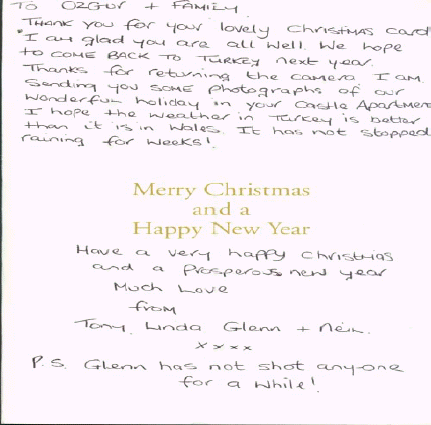 TO OZGUR + FAMILY
THANK you for your lovely Christmas card
I am glad you are all well. We hope
to COME BACK TO TURKEY next year.
Thanks for returning the camera I am
Sending you SOME photographs of our
wonderful holiday in your Castle Apartment
I hope the weather in Turkey is better
than it is in Wales. It has not stopped
raining for weeks!
Merry Christmas
and a
Happy New Year
Have a very happy Christmas
and a Prosperous new year
Much Love
from
Tony, Linda Glenn + Neil.
x x x x
P.S. Glenn has not shot anyone
for a while!